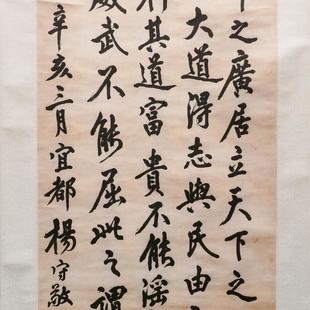 下之廣居立天下之
大道得志與民由
其道富貴不能淫
威武不能屈此之謂
辛亥三月宜都楊守敬